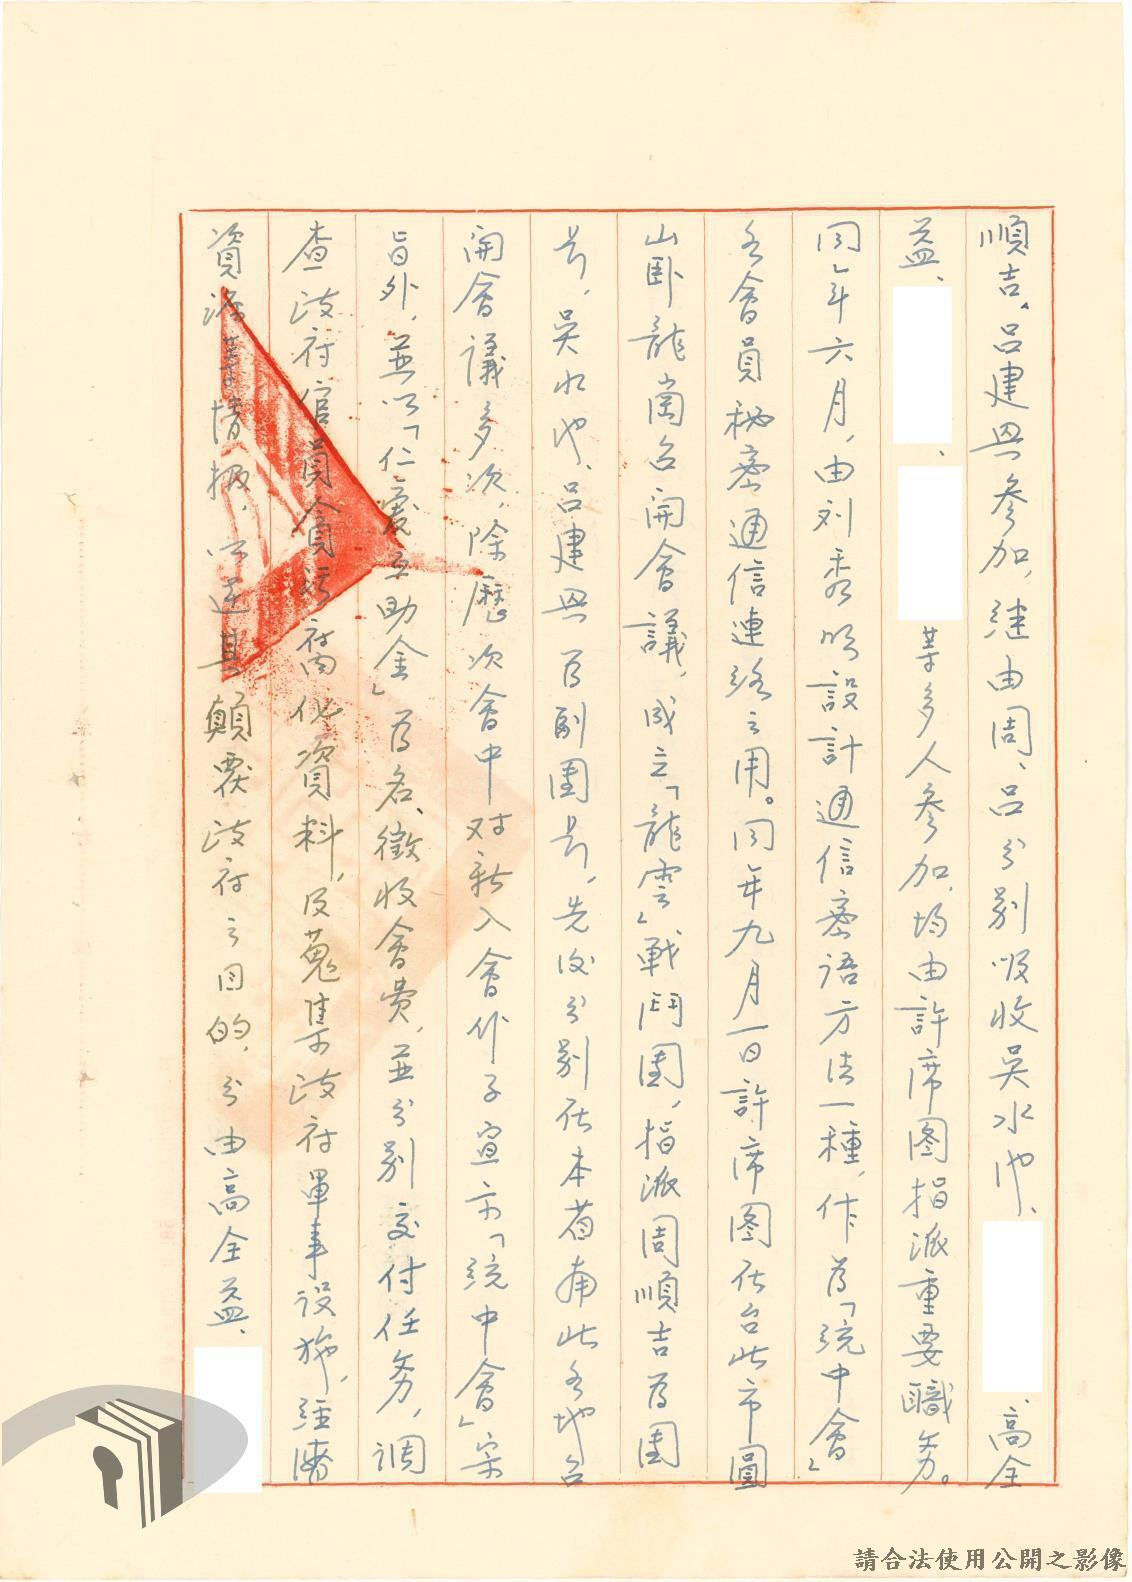 順吉、呂建興參加，继由周、呂分别吸收吴水池、、高全
益、、等多人參加，均由許席图指派重要職务。
同年六月，由刘秀明設計通信密語方法一種，作為「統中會」
各會員秘密通信連絡之用。同年九月一日許席图在台北市圓
山卧龍崗召開會議，成立「龍雲」戰鬥團，指派周順吉為團
长，吴水池、呂建興為副團长，先後分别在本省南北各地召
開會議多次，除歷次會中对新入會份子宣示「統中會」宗
旨外，並以「仁愛互助金」為名，徵收會費，並分别交付任务，調
查政府官員貪污腐化資料，及蒐集政府軍事設施，經濟
資源等情报，以逞其顛覆政府之目的，分由高全益、
請合法使用公開之影像